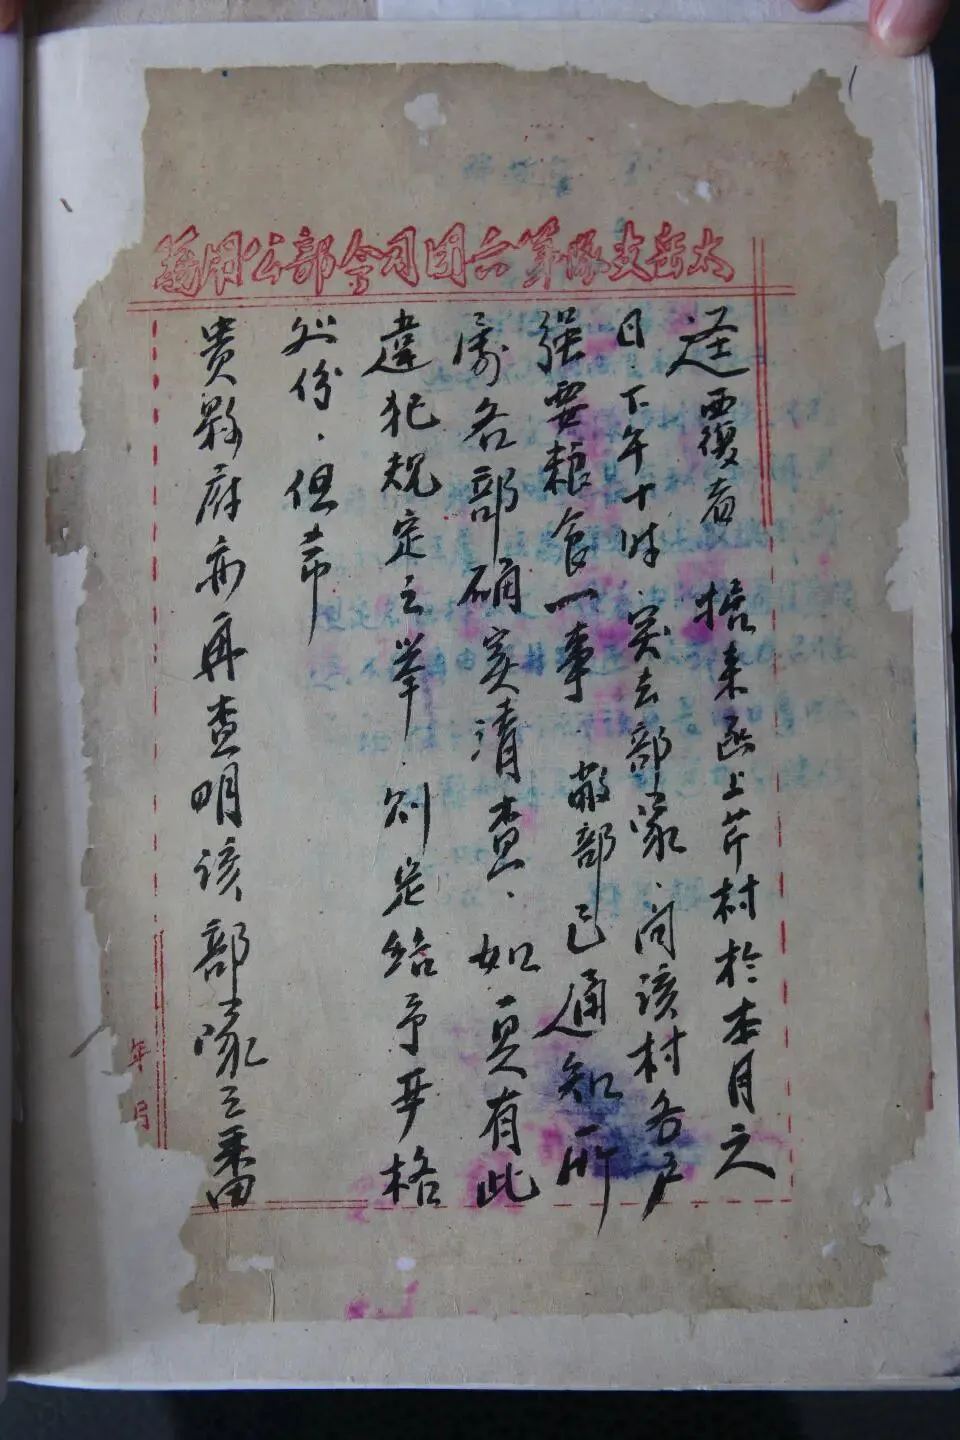 太岳支隊第六团司令部公用箋
逕覆者 据来函上芹村於本月之
日.下午十时突去部家.问该村各户
强要粮食一事.敝部已通知所
属各部确实清查.如真有此
違犯規定之举.则定给予严格
处份.但希
贵縣府亦再查明该部家之番
年 月